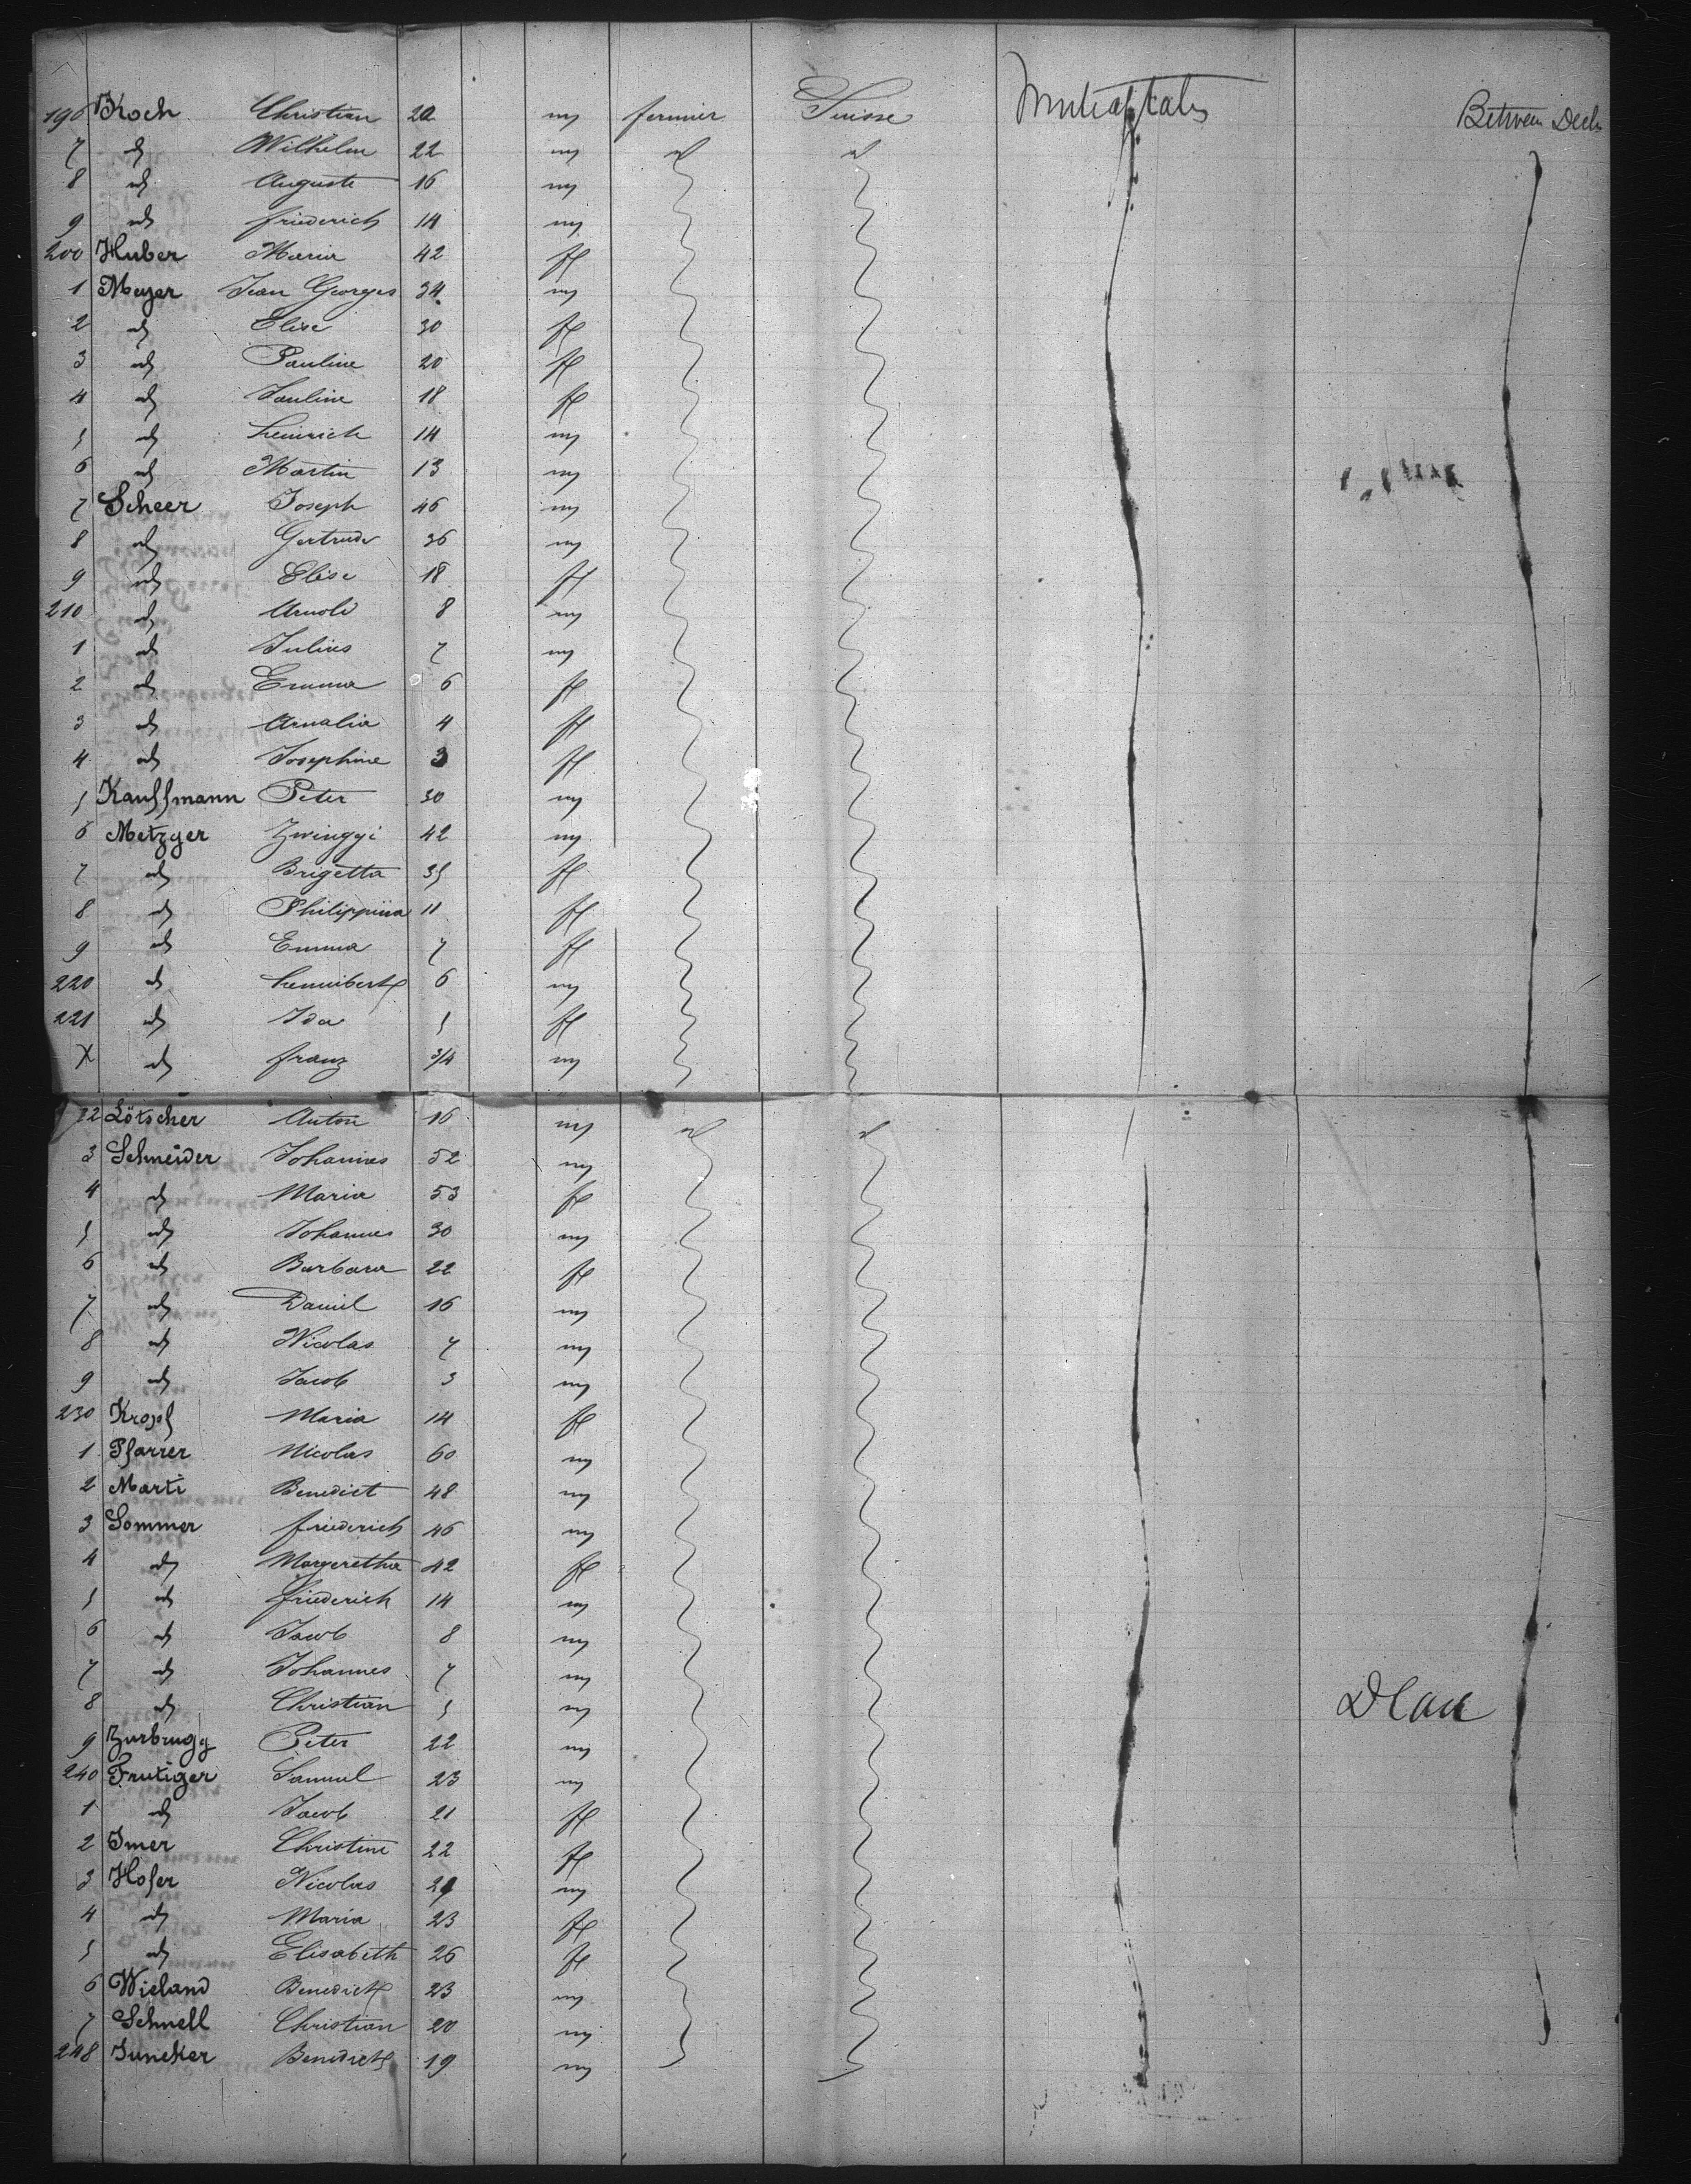 196 Koch Christian 20 m fermier Suisse United States Between Decks
7 id Wilhelm 22 m id id
8 id Auguste 16 m
9 id friederich 14 m
200 Huber Maria 42 f
1 Meyer Jean Georges 34 m
2 id Elise 30 f
3 id Pauline 20 f
4 id Pauline 18 f
5 id heinrich 14 m
6 id Martin 13 m
7 Scheer Joseph 46 m
8 id Gertrude 36 m
9 id Elise 18 f
210 id Arnold 8 m
1 id Julius 7 m
2 id Emma 6 f
3 id Amalia 4 f
4 id Josephine 3 f
5 Kauffmann Peter 30 m
6 Metzger Zwinggi 42 m
7 id Brigetta 35 f
8 id Philippina 11 f
9 id Emma 7 f
220 id 6 m
221 id Ida 5 f
X id franz 3/4 m
22 Lötscher Anton 16 m id id
3 Schneider Johannes 52 m
4 id Maria 53 f
5 id Johannes 30 m
6 id Barbara 22 f
7 id Daniel 16 m
8 id Nicolas 7 m
9 id Jacob 3 m
230 Kropf Maria 14 f
1 Pfarrer Nicolas 60 m
2 Marti Benedict 48 m
3 Sommer friederich 46 m
4 id Margeretha 42 f
5 id friederich 14 m
6 id Jacob 8 m
7 id Johannes 7 m
8 id Christian 5 m
9 Zurbrugg Peter 22 m
240 Frutiger Samuel 23 m
1 id Jacob 21 f
2 Imer Christine 22 f
3 Hofer Nicolas 29 m
4 id Maria 23 f
5 id Elisabeth 26 f
6 Wieland Benedict 23 m
7 Schnell Christian 20 m
248 Juncker Benedict 19 m